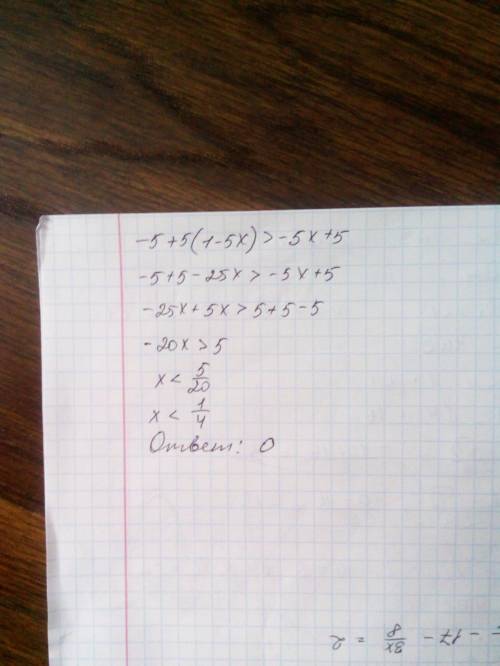 -5+5(1-5x)>-5x+5
-5+5-25x>-5x+5
-25x+5x>5+5-5
-20x>5
x<5/20
x<1/4
Ответ: 0
-17-8x/8=2